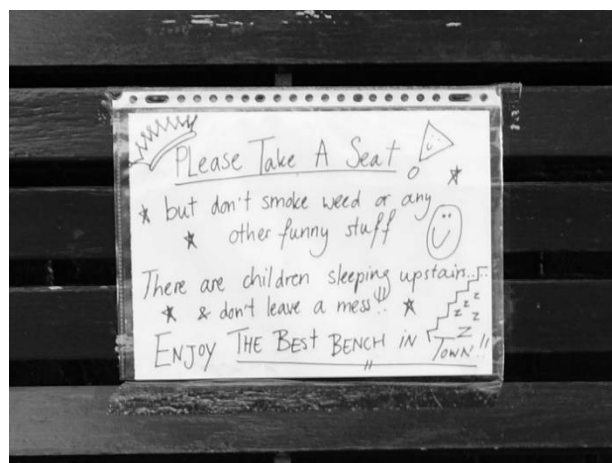 PLease Take A Seat
but don't smoke weed or any
other funny stuff
There are children sleeping upstairs...
& don't leave a mess!!
ENJOY THE BEST BENCH IN TOWN!!
z z z z z